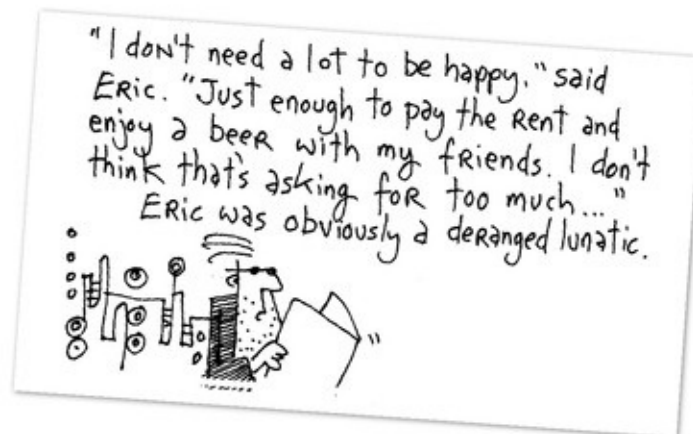 "I don't need a lot to be happy," said
Eric. "Just enough to pay the Rent and
enjoy a beer with my friends. I don't
think that's asking for too much..."
Eric was obviously a deranged lunatic.